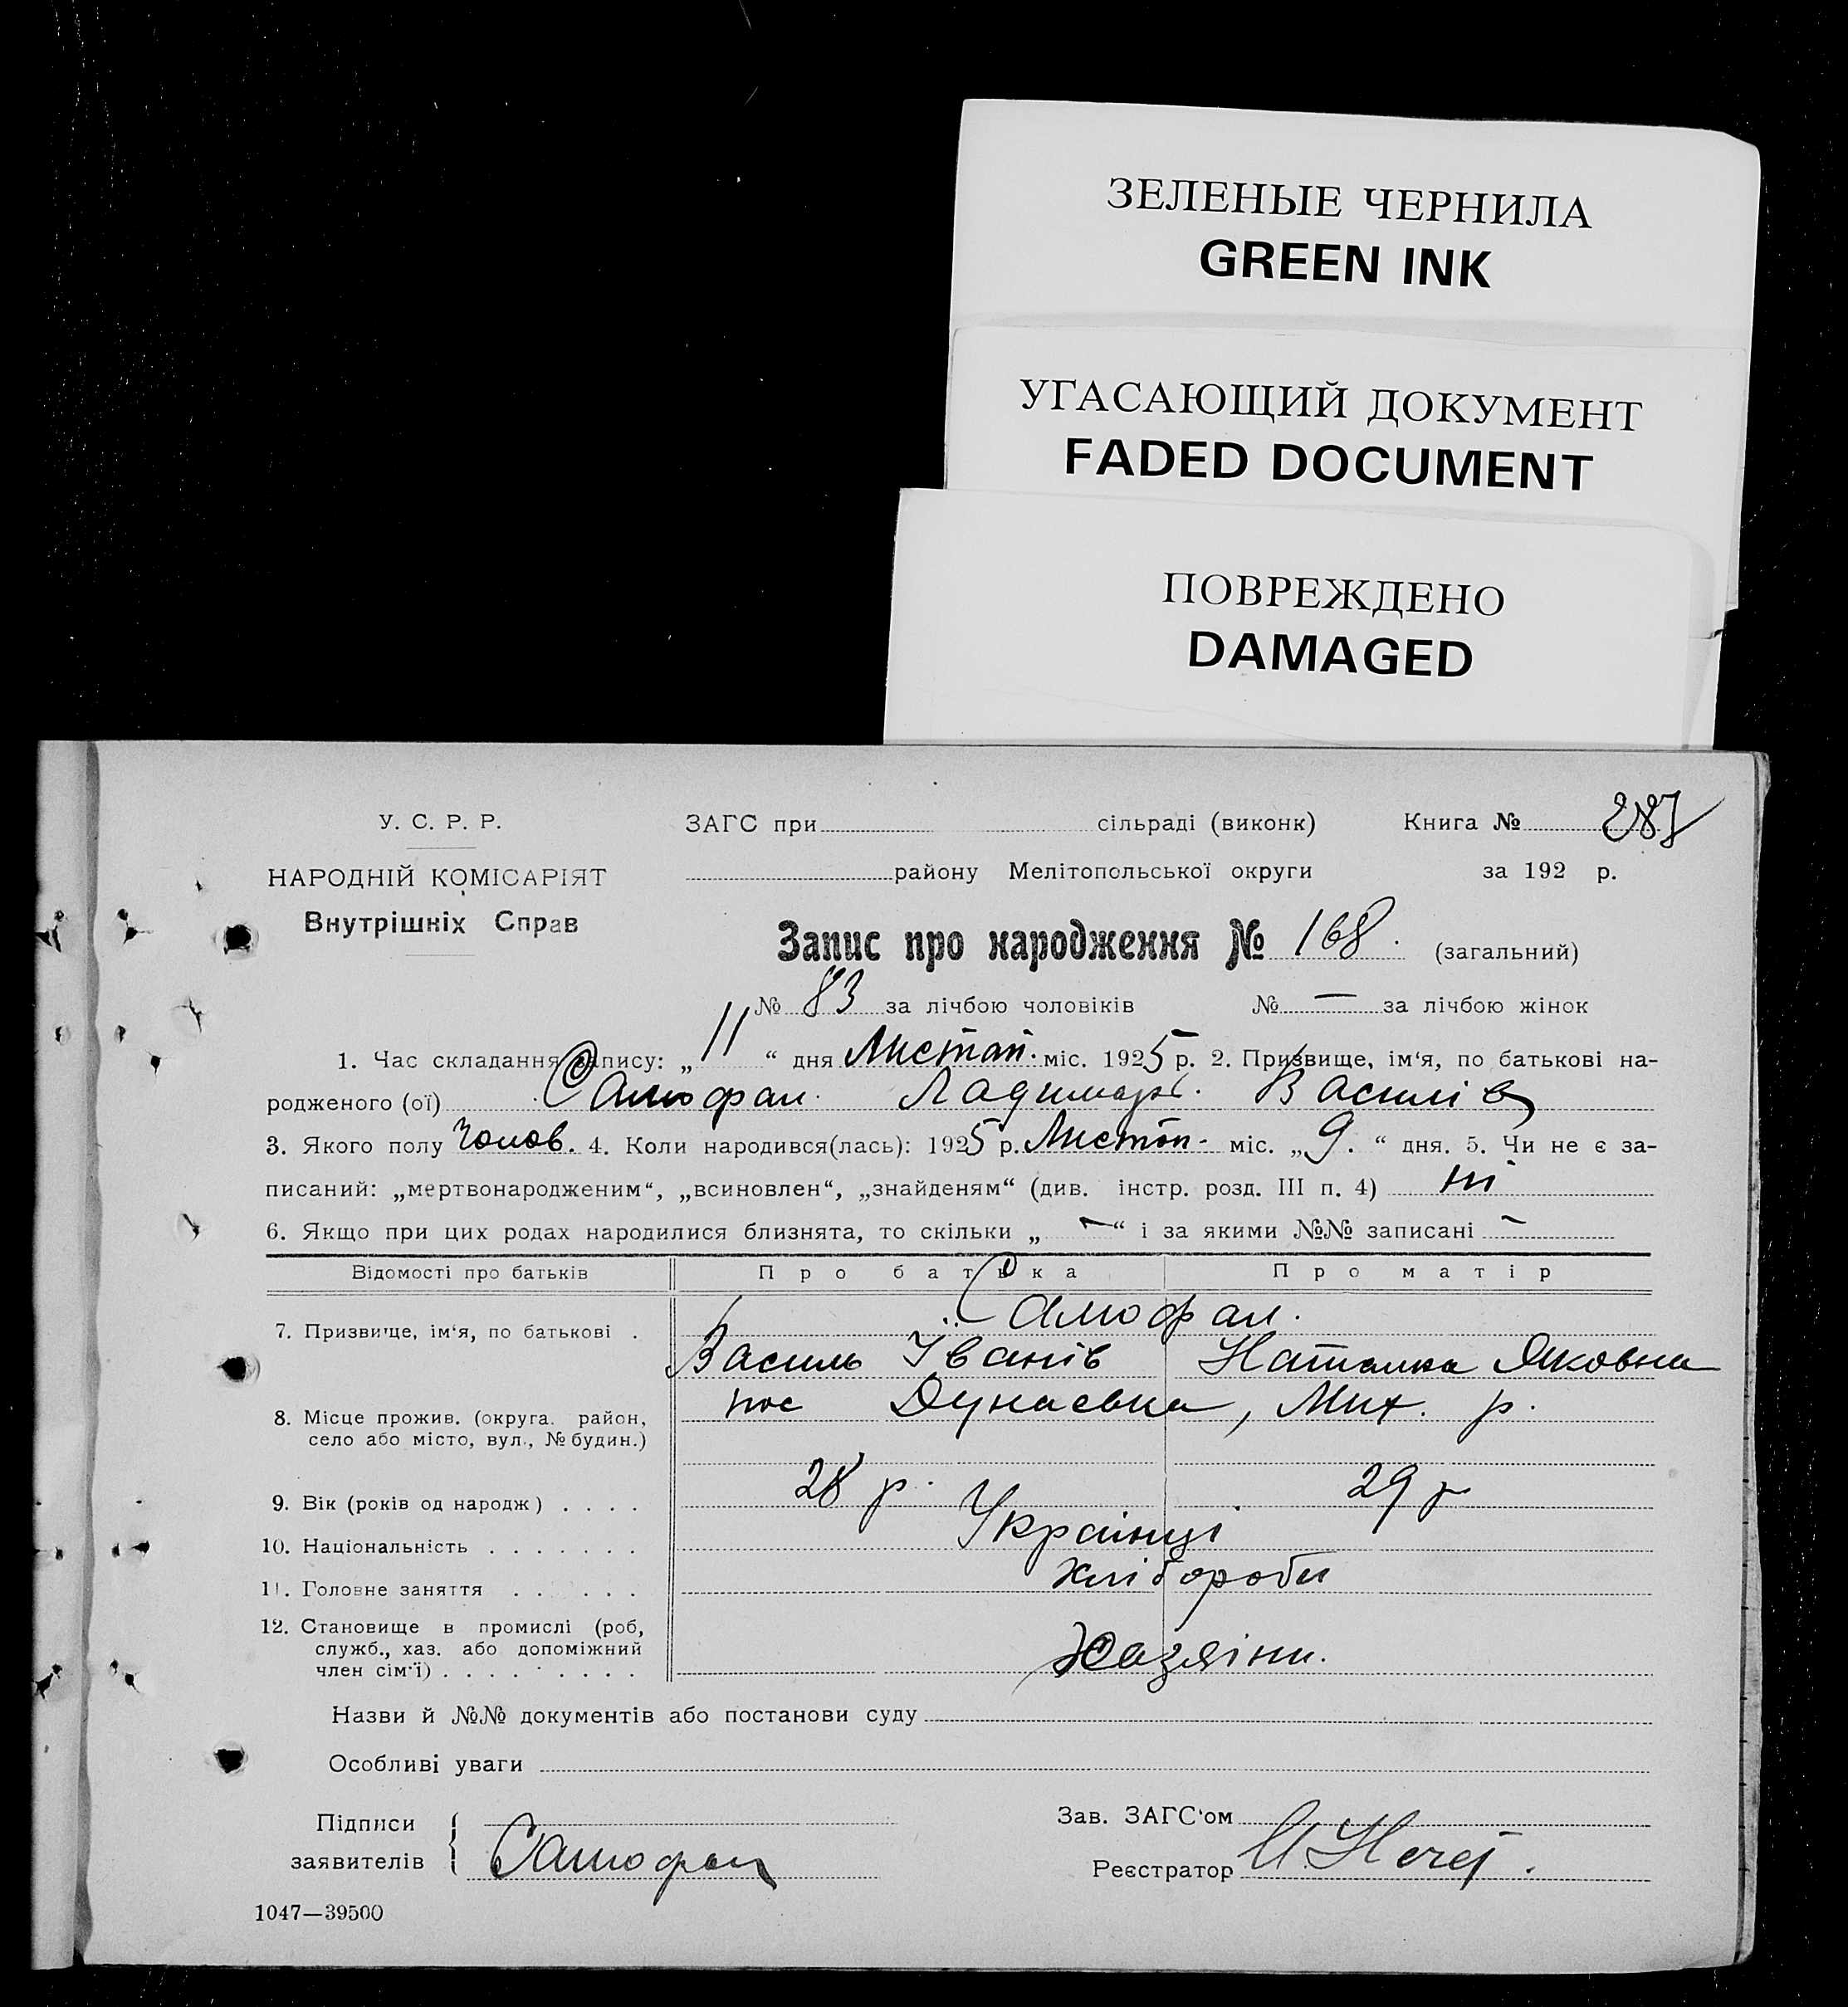 ЗЕЛЕНЫЕ ЧЕРНИЛА
GREEN INK
УГАСАЮЩИЙ ДОКУМЕНТ
FADED DOCUMENT
ПОВРЕЖДЕНО
DAMAGED
У. С. Р. Р.
НАРОДНІЙ КОМІСАРІЯТ
Внутрішніх Справ
ЗАГС при сільраді (виконк) Книга № 287
району Мелітопольської округи за 192 р.
Запис про народження № 168. (загальний)
№ 83 за лічбою чоловіків № — за лічбою жінок
1. Час складання запису: „ 11 “ дня Листоп. міс. 1925 р. 2. Призвище, ім‘я, по батькові на-
родженого (ої) Самофал. Ладимир. Василів
3. Якого полу Чолов. 4. Коли народився(лась): 1925 р. Листоп- міс. „ 9. “ дня. 5. Чи не є за-
писаний: „мертвонародженим“, „всиновлен“, „знайденям“ (див. інстр. розд. III п. 4) ні
6. Якщо при цих родах народилися близнята, то скільки „ — “ і за якими №№ записані —
Відомості про батьків Про батька Про матір
7. Призвище, ім‘я, по батькові . Самофал.
Василь Іванів Наталка Яковна
8. Місце прожив. (округа. район, село або місто, вул., № будин.) пос Дунаевка, Мих. р.
9. Вік (років од народж) . . . . 28 р. 29 р
10. Національність . . . . . . . Українці
11. Головне заняття . . . . . . хлібороби
12. Становище в промислі (роб,
служб., хаз. або допоміжний
член сім‘ї) . . . . . . . . . Хазяіни.
Назви й №№ документів або постанови суду
Особливі уваги
Підписи
заявителів Самофал
Зав. ЗАГС‘ом
Реєстратор
1047—39500